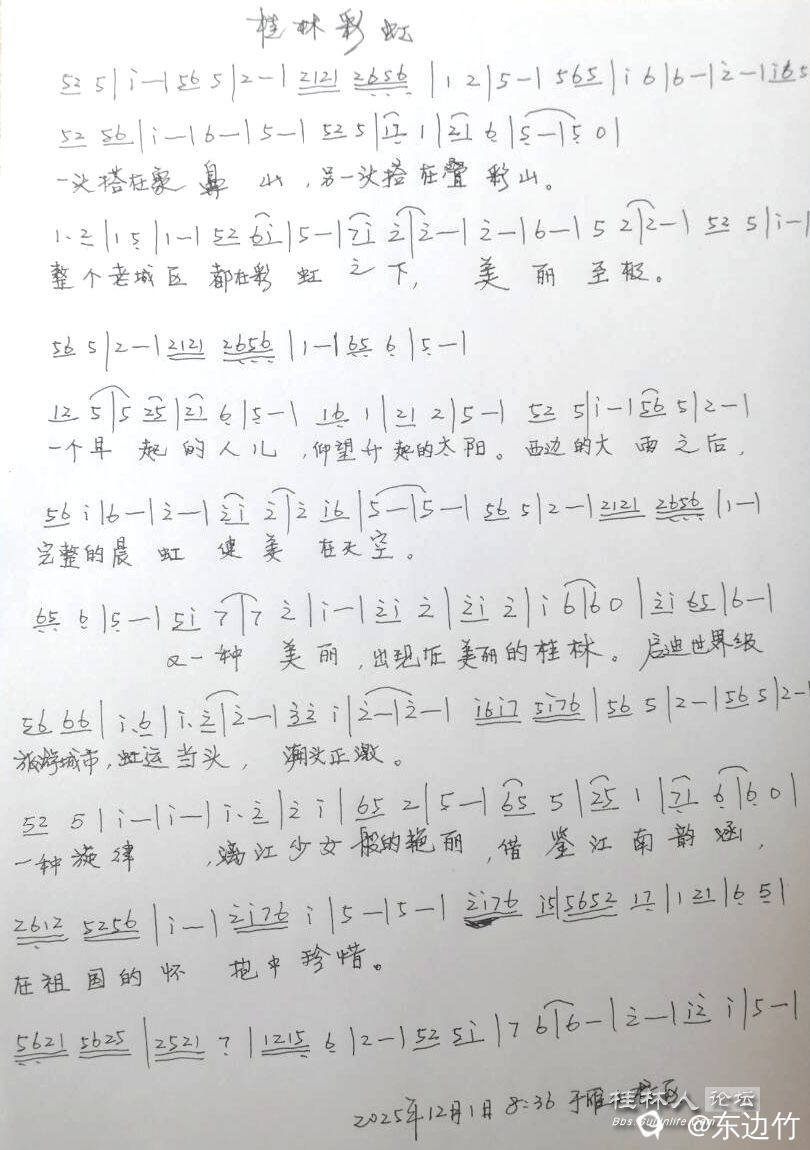 桂林彩虹
52 5|i-|56 5|2-|2121 2656|1 2|5-|565|i 6|6-|i-|i65
52 56|i-|6-|5-|52 5|17 1|21 6|5-|5 0|
一头搭在象鼻山,另一头搭在叠彩山。
1.2|15|1-|52 6i|5-|7i 2|2-|2-|6-|5 2|2-|52 5|i-|
整个老城区都在彩虹之下,美丽至极。
56 5|2-|2121 2656|1-|65 6|5-|
12 5|5 25|21 6|5-|16 1|21 2|5-|52 5|i-|56 5|2-|
一个早起的人儿,仰望升起的太阳。西边的大雨之后,
56 i|6-|2-|2i 2|2 i6|5-|5-|56 5|2-|2121 2656|1-|
完整的晨虹健美在天空。
65 6|5-|5i 7|7 2|i-|2i 2|2i 2|i 6|60|2i 65|6-|
一种美丽,出现在美丽的桂林。启迪世界级
56 66|i.6|i.2|2-|32 i|2-|2-|i6i7 5i76|56 5|2-|56 5|2-
旅游城市,虹运当头,潮头正激。
52 5|i-|i-|i.2|2 i|65 2|5-|65 5|25 1|71 6|60|
一种旋律,漓江少女般的艳丽,借鉴江南韵涵,
2612 5256|i-|2i76 i|5-|5-|2i76 i5|5652 17|1 21|6 5|
在祖国的怀抱中珍惜。
5621 5625|2521 7|1215 6|2-|52 5i|7 6|6-|2-|i2 i|5-|
2025年12月1日 8:36 于雁
桂林人论坛
Bbs.Guilinlife.com
@东边竹